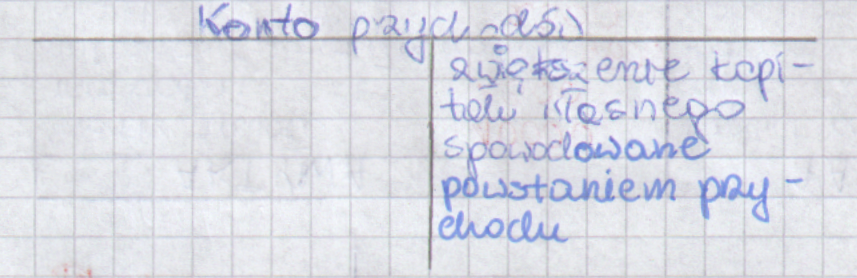 Konto przychodów
zwiększenie kapi-
tału własnego
spowodowane
powstaniem przy-
chodu